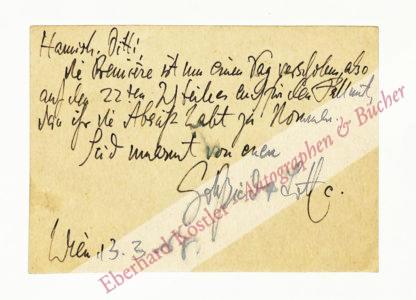 die Première ist um einen Tag verschoben, also
auf den 22ten. Ich teile es euch für den Fall mit,
dass ihr die Absicht habt zu kommen.
Seid umarmt von euren
Wien, 13. 3.
Eberhard Köstler Autographen & Bücher